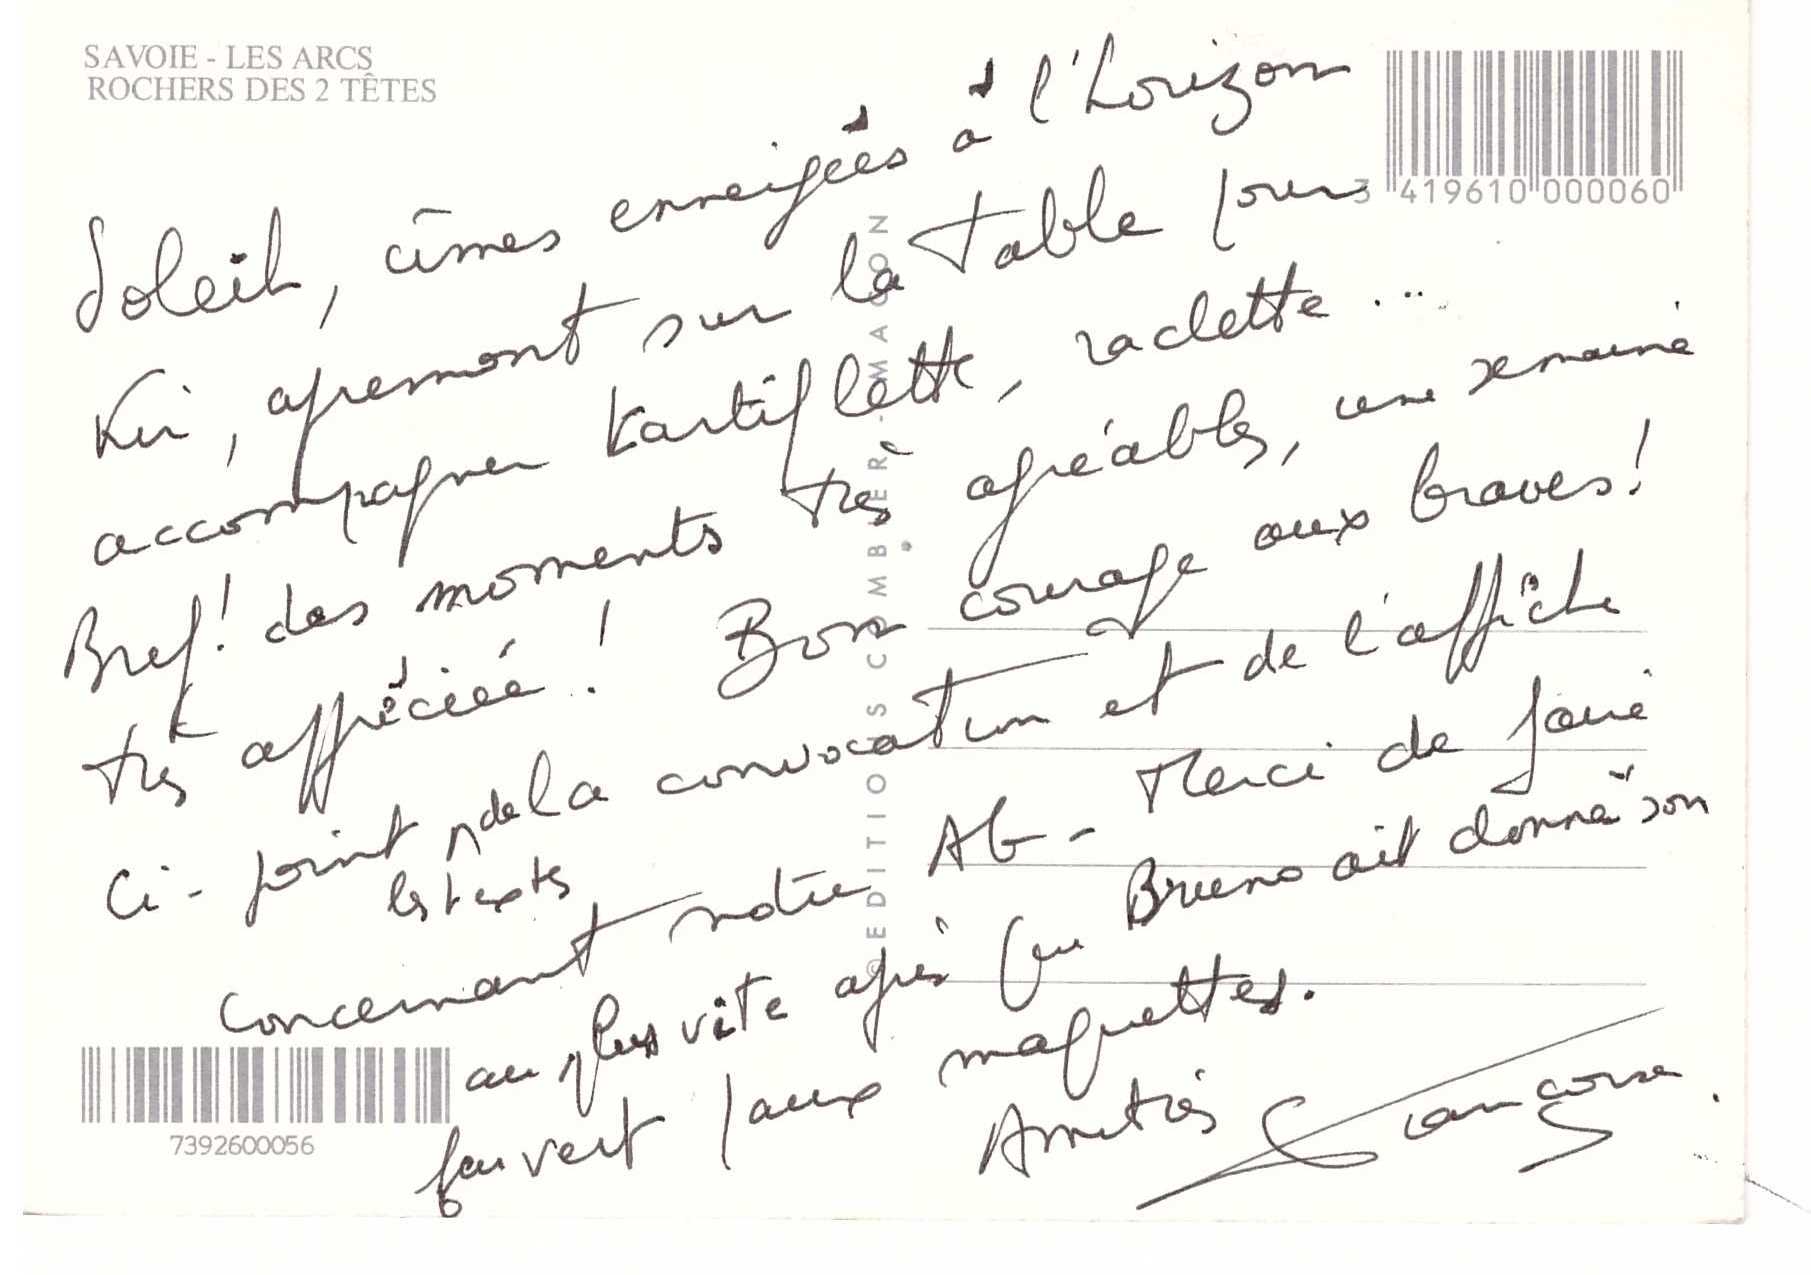 SAVOIE - LES ARCS
ROCHERS DES 2 TÊTES
3 419610 000060
Soleil, cîmes enneigées à l'horizon
Kir, apremont sur la table pour
accompagner tartiflette, raclette...
Bref! des moments très agréables, une semaine
très appréciée! Bon courage aux braves!
Ci-joint de la convocation et de l'affiche
les textes
concernant notre AG - Merci de faire
au plus vite après que Bruno ait donné son
feu vert aux maquettes.
Amitiés
© EDITIONS COMBIER - MACON
7392600056